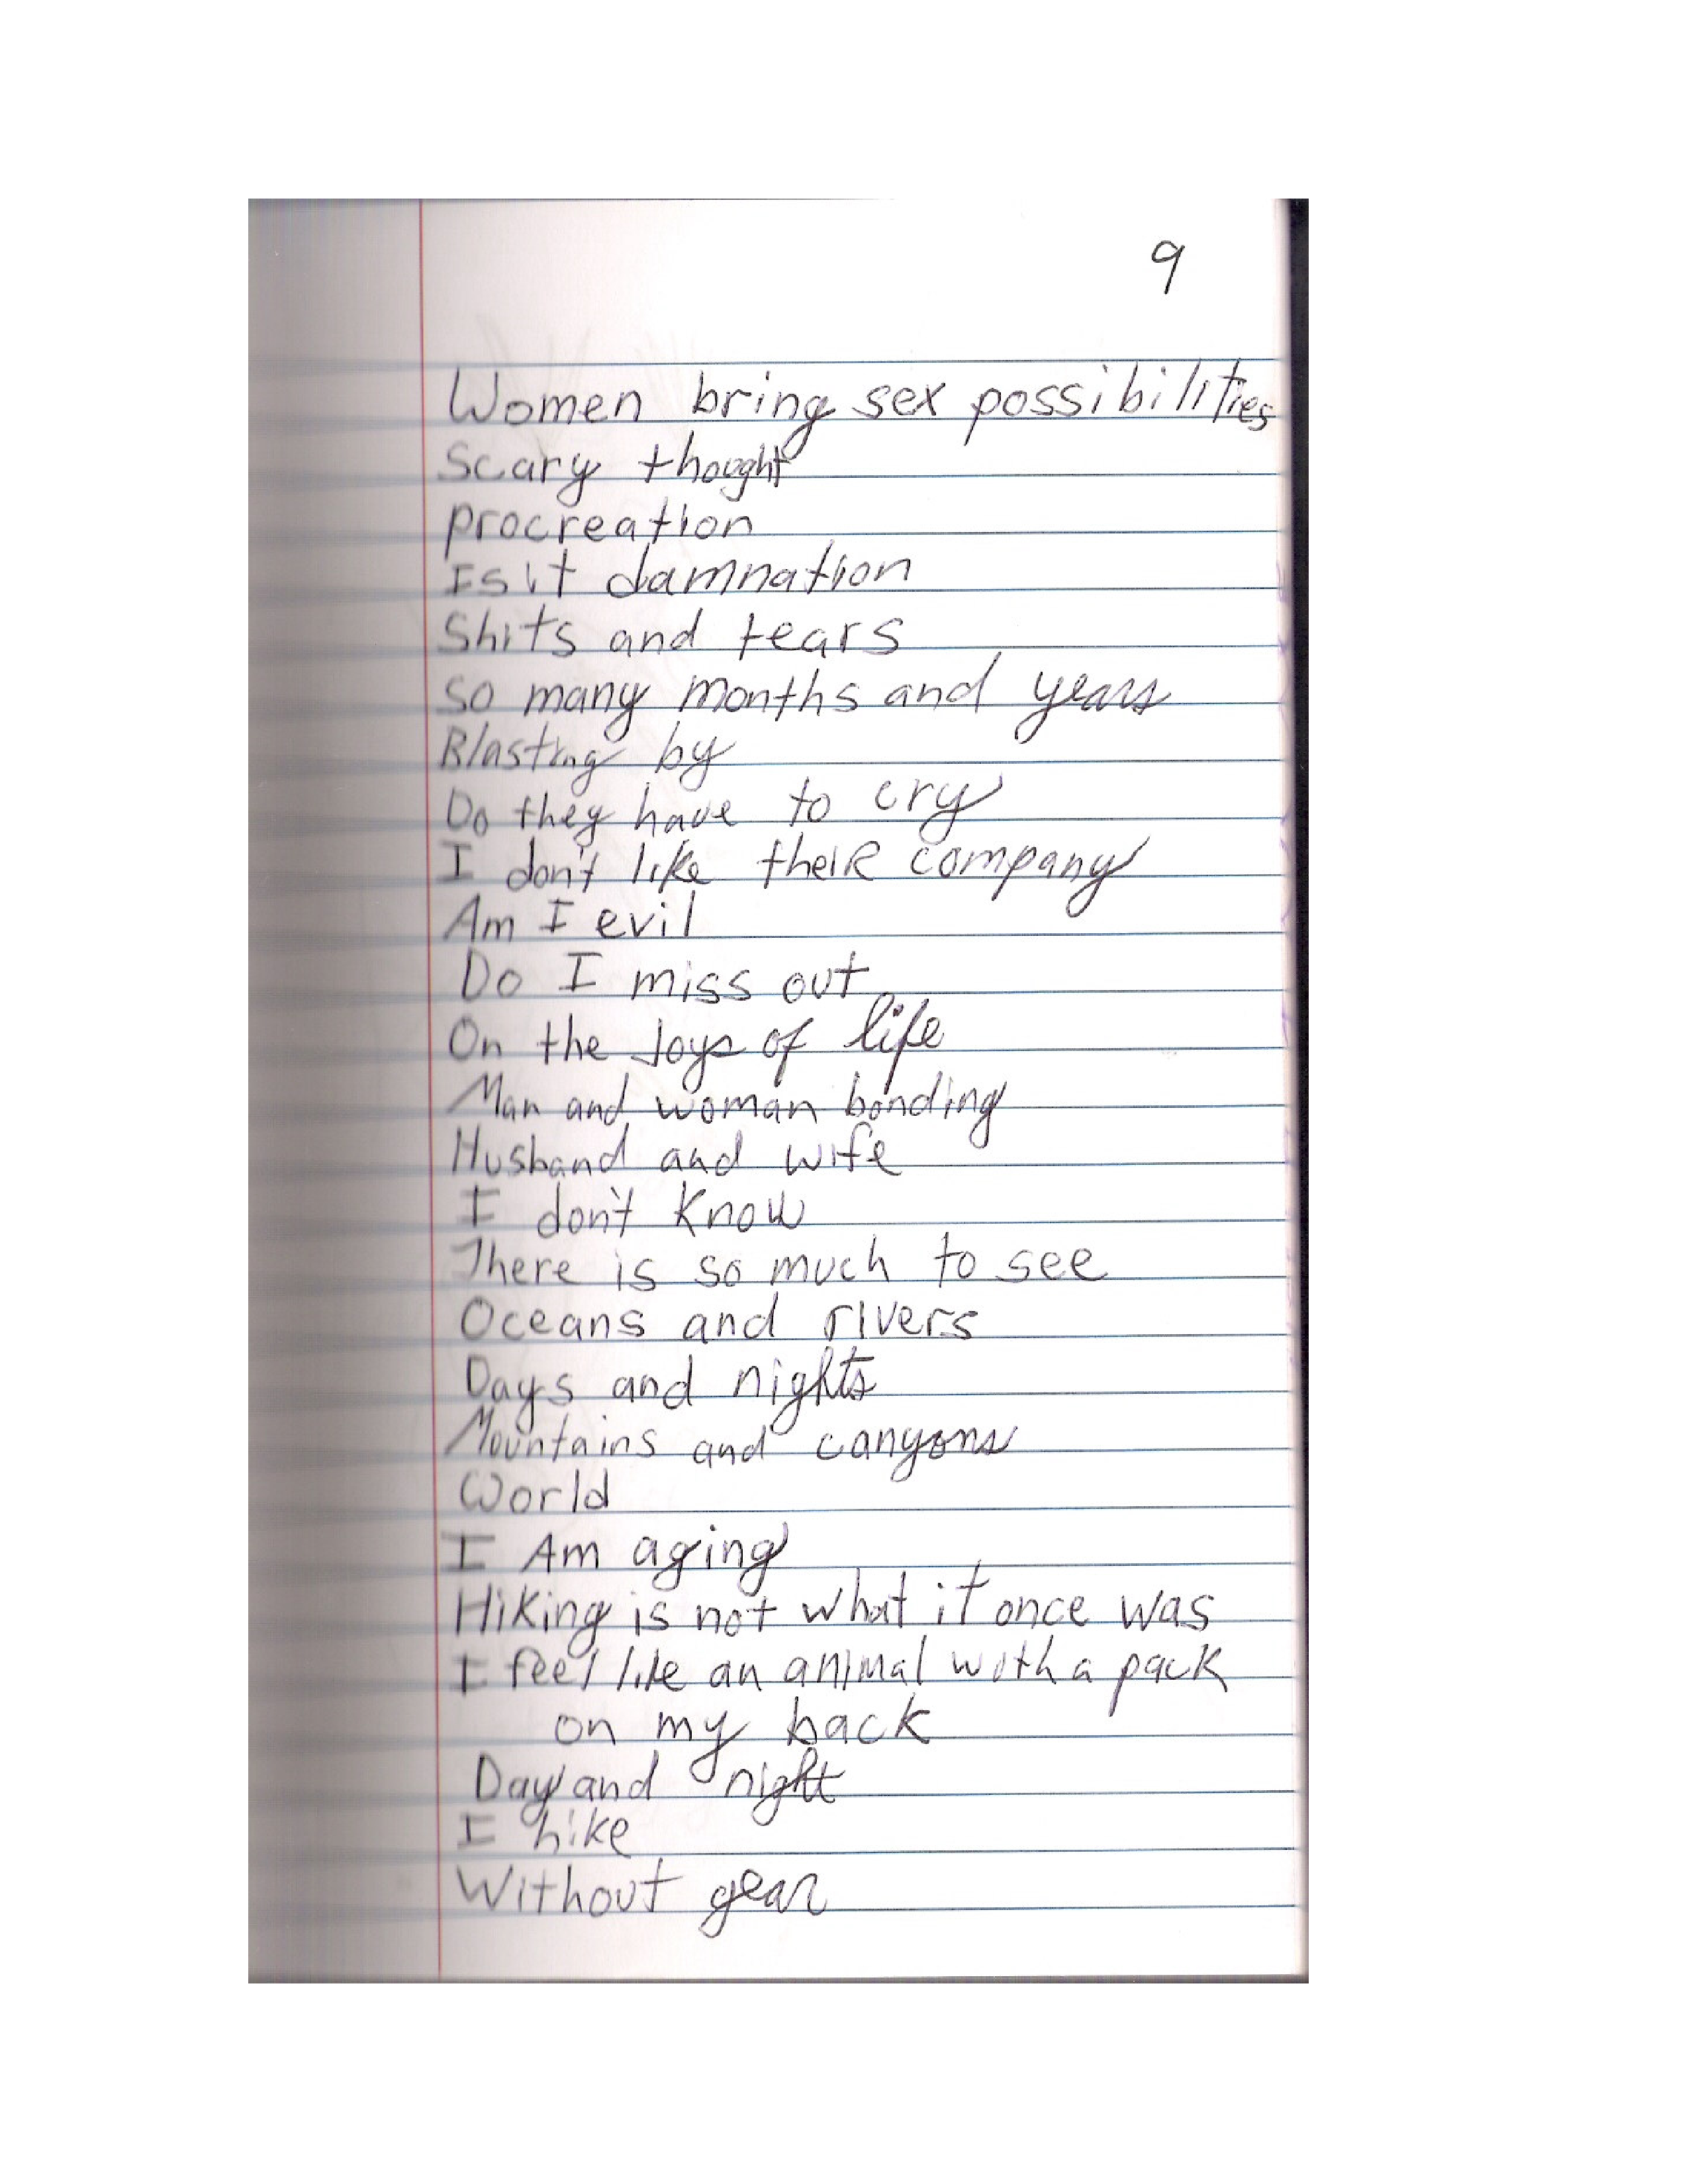 9
Women bring sex possibilities
Scary thought
procreation
Is it damnation
Shits and tears
so many months and years
Blasting by
Do they have to cry
I don't like theiR company
Am I evil
Do I miss out
On the Joys of life
Man and woman bonding
Husband and wife
I don't know
There is so much to see
Oceans and rivers
Days and nights
Mountains and canyons
World
I Am aging
Hiking is not what it once was
I feel like an animal with a pack
on my back
Day and night
I hike
Without gear